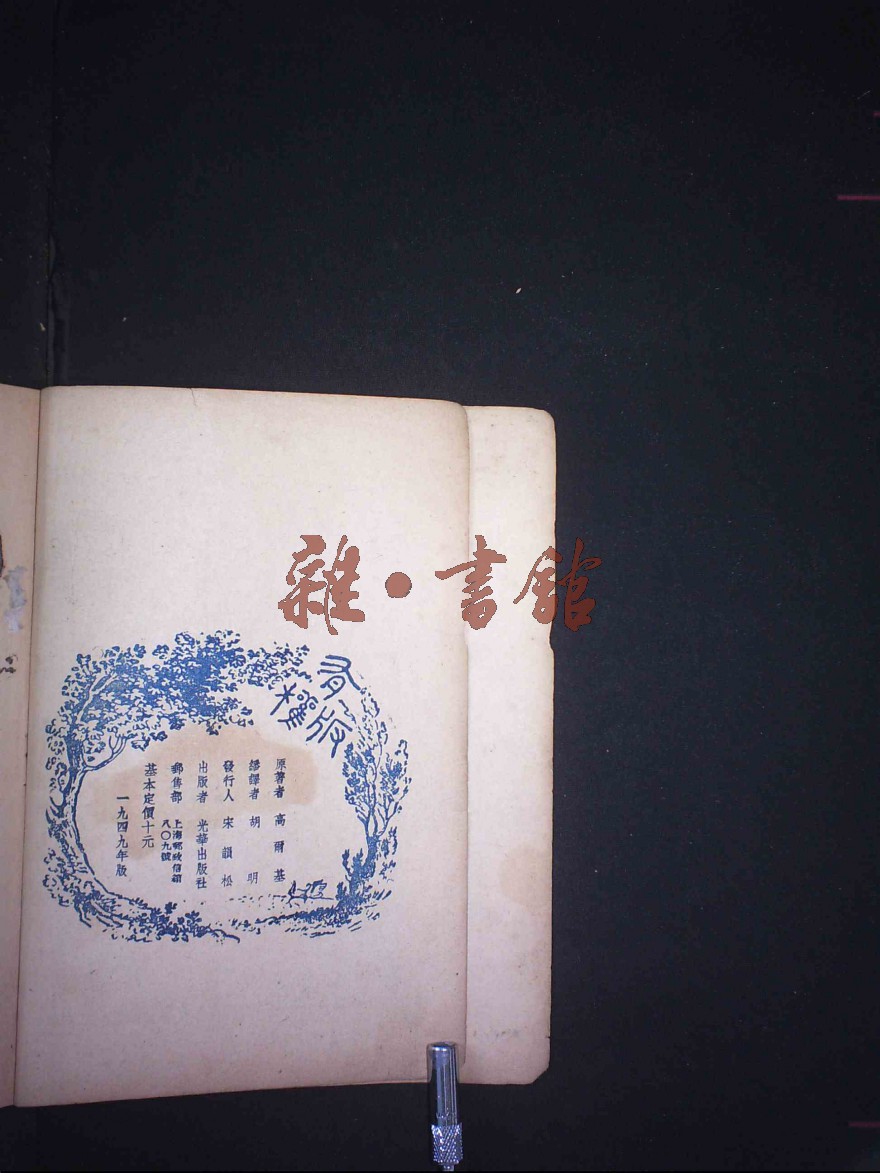 雜·書館
有版權
原著者 高爾基
繙譯者 胡明
發行人 宋韻松
出版者 光華出版社
郵售部 上海郵政信箱
八〇九號
基本定價十元
一九四九年版